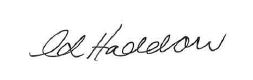 Ed Haddow